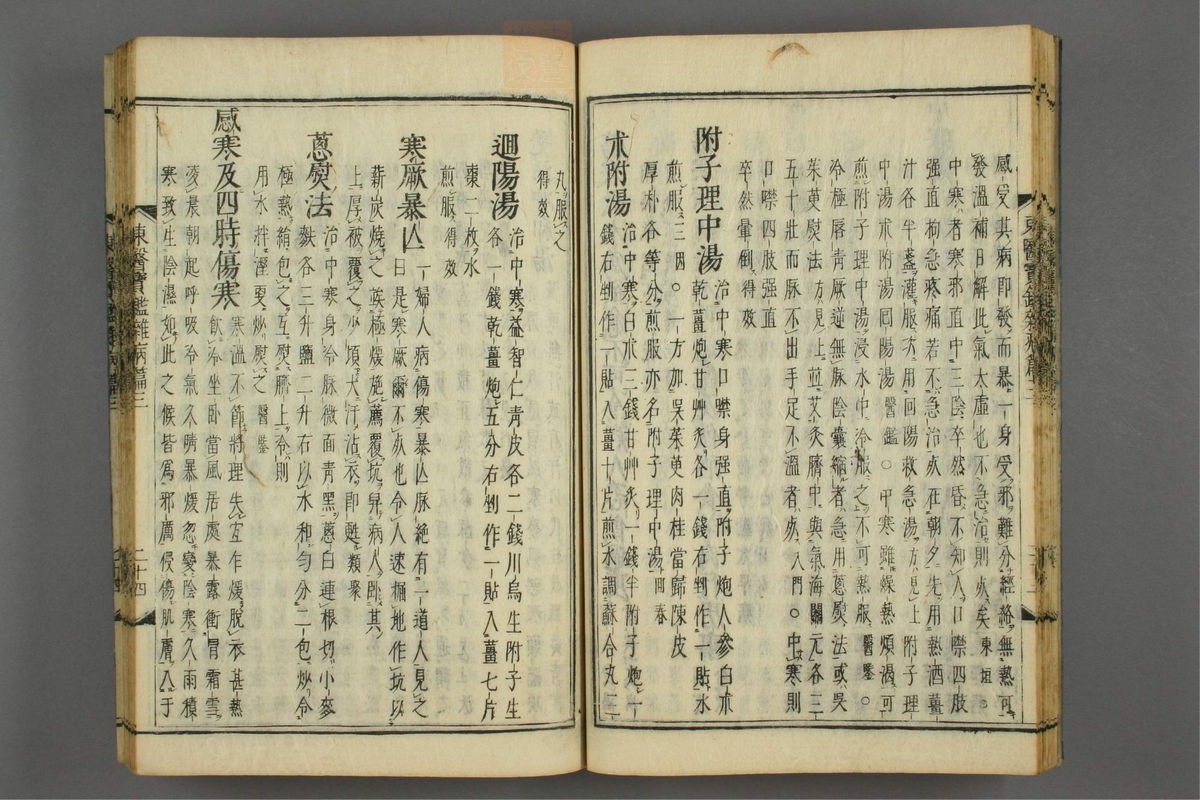 感受其病即發而暴一身受邪難分經絡無熱可
發溫補自解此氣太虛也不急治則死矣東垣○
中寒者寒邪直中三陰卒然昏不知人口噤四肢
强直拘急疼痛若不急治死在朝夕先用熱酒薑
汁各半盞灌服次用回陽救急湯方見上附子理
中湯术附湯回陽湯醫鑑○中寒雖燥熱煩渴可
煎附子理中湯浸水中冷服之不可熱服醫鑒○
冷極唇青厥逆無脉陰囊縮者急用蔥熨法或吳
茱萸熨法方見上並艾灸臍中與氣海關元各三
五十壯而脉不出手足不溫者死入門○中寒則
口噤四肢强直
卒然暈倒得效
附子理中湯 治中寒口噤身强直附子炮人參白术
乾薑炮甘艸炙各一錢右剉作一貼水
煎服三因○一方加吳茱萸肉桂當歸陳皮
厚朴各等分煎服亦名附子理中湯回春
术附湯 治中寒白术三錢甘艸炙一錢半附子炮一
錢右剉作一貼入薑十片煎水調蘇合丸三
丸服之
得效
迴陽湯 治中寒益智仁青皮各二錢川烏生附子生
各一錢乾薑炮五分右剉作一貼入薑七片
棗一枚水
煎服得效
寒厥暴亾 一婦人病傷寒暴亾脉絶有一道人見之
曰是寒厥爾不死也令人速掘地作坑以
薪炭燒之俟極煖施薦覆坑舁病人臥其
上厚被覆之少頃大汗沾衣即甦類聚
蔥熨法 治中寒身冷脉微面青黑蔥白連根切小麥
麩各三升鹽二升右以水和勻分二包炒令
極熱絹包之互熨臍上冷則
用水拌溼更炒熨之醫鑒
感寒及四時傷寒 寒溫不節將理失宜作煖脫衣甚熱
飲冷坐臥當風居處暴露衝冒霜雪
凌晨朝起呼吸冷氣久晴暴煖忽變陰寒久雨積
寒致生陰濕如此之候皆爲邪厲侵傷肌膚入于
東醫寶鑑雜病篇三
二十四
東醫寶鑑雜病篇三